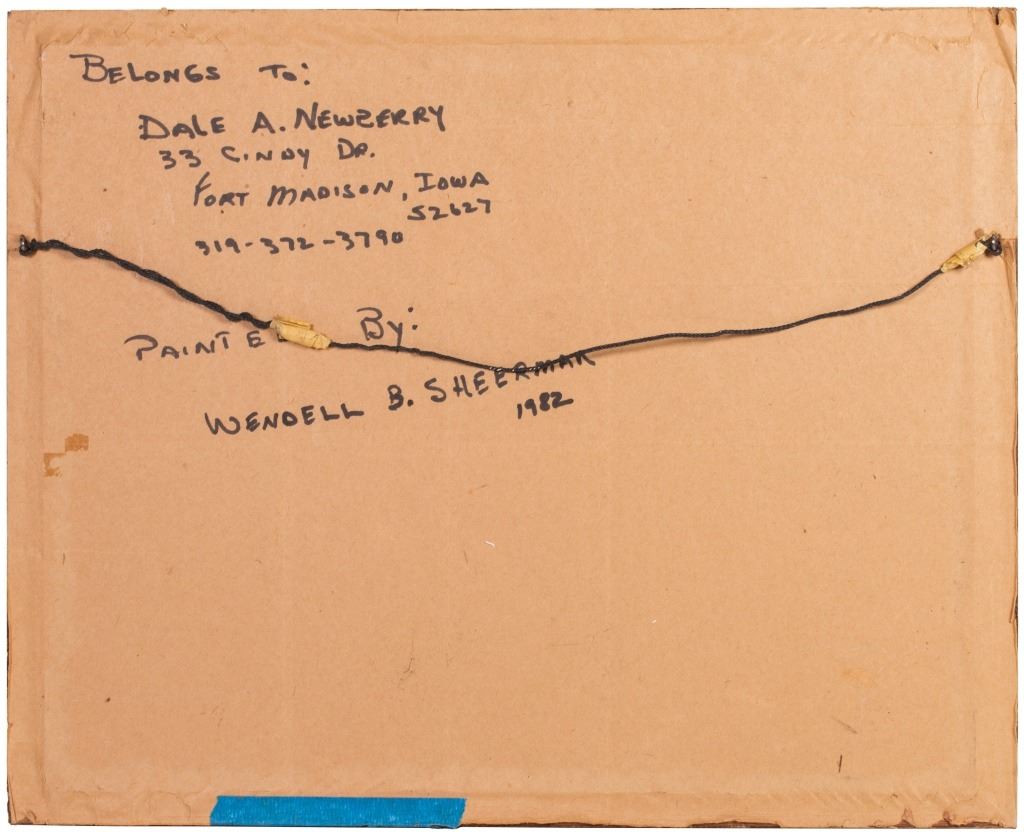 BELONGS TO:
DALE A. NEWZERRY
33 CINDY DR.
FORT MADISON, IOWA
52627
319-372-3790
PAINTE By:
WENDELL B. SHEERMAN
1982